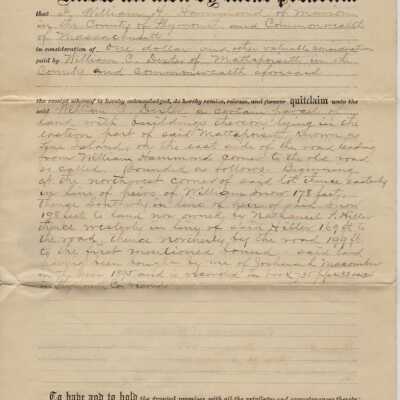 Know all men by these presents
that I, William J. Hammond of Marion
in the County of Plymouth and Commonwealth
of Massachusetts
in consideration of One dollar and other valuable consideration
paid by William C. Dexter of Mattapoisett in the
County and Commonwealth aforesaid
the receipt whereof is hereby acknowledged, do hereby remise, release, and forever quitclaim unto the
said William Dexter a certain parcel of
land with buildings thereon lying in the
eastern part of said Mattapoisett known as
Island, on the east side of the road leading
from William Hammond corner to the old road
so called. Bounded as follows. Beginning
at the northwest corner of said lot thence easterly
in line of heirs of William 178 feet
thence southerly in line of heirs of said
198 feet to land now owned by Nathaniel P. Hiller
thence westerly in line of said Hiller 169 ft to
the road, thence northerly by the road 199 ft
to the first mentioned bound - said land
having been bought by me of Macomber
in the year and is recorded in book
in Plymouth Co records
To have and to hold the granted premises with all the privileges and appurtenances thereto